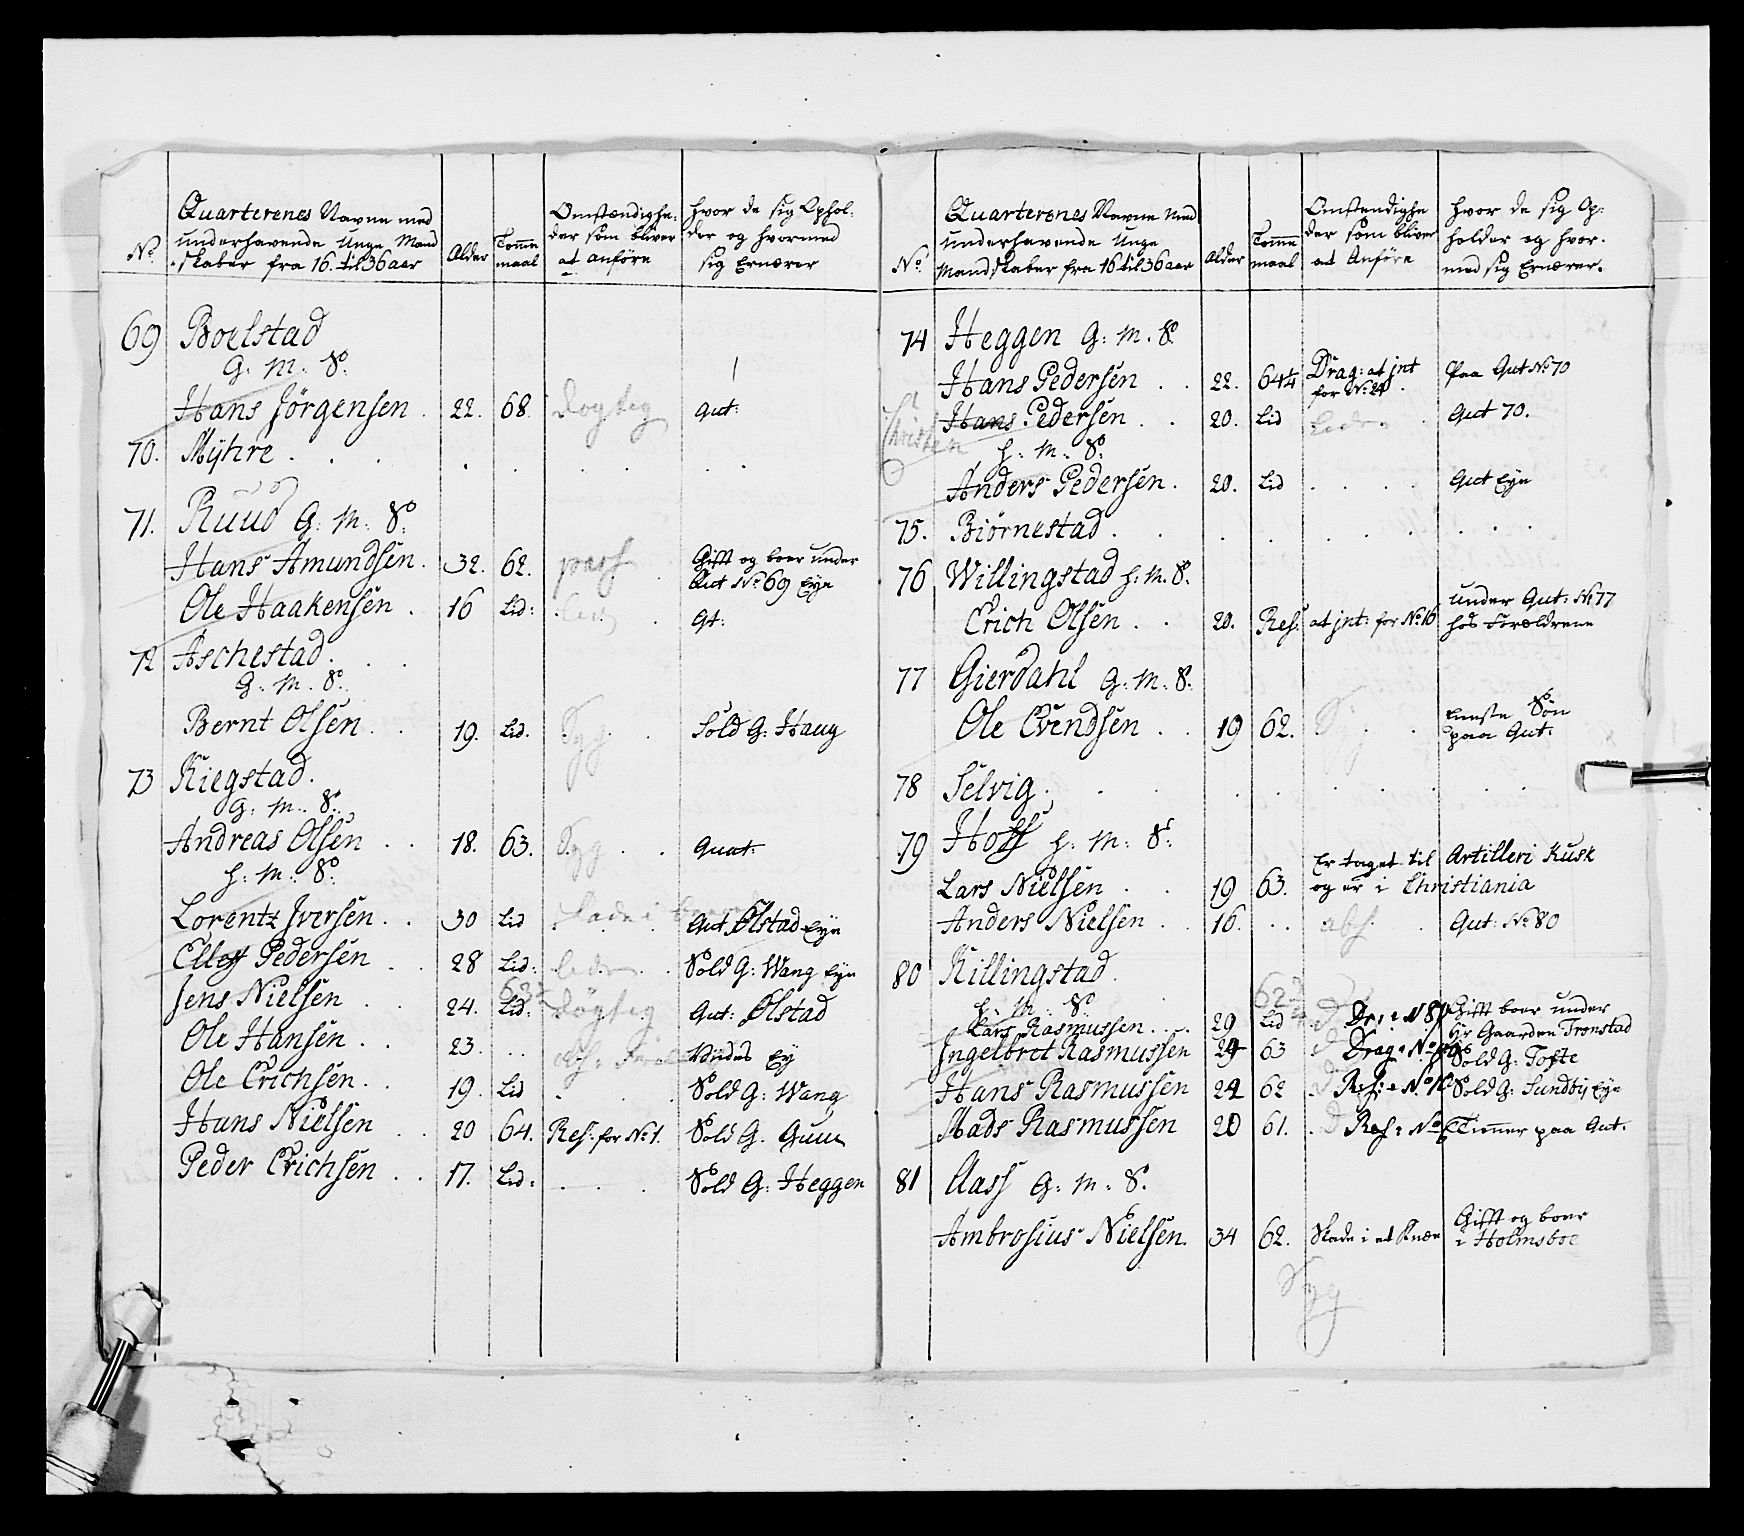 Nº
Quarterenes Navne med
underhavende Unge Mand
skaber fra 16. til 36 aar
Alder
Tomme
maal
Omstændighe:
der som bliver
at anføre
hvor de sig Ophol:
der og hvormed
sig Ernærer
69 Boelstad
G: M: S:
Hans Jörgensen . 22. 68. Dögtig Gut:
70. Myhre . . .
71. Ruud G: M: S:
Hans Amundsen . 32. 62. pass Gift og boer under
Gut Nº 69 Eye
Ole Haakensen . 16 Lid: Gt:
72 Aschestad . . .
G: M: S:
Bernt Olsen . . 19. Lid. Syg Sold G: Haug
73 Kiegstad .
G: M: S:
Andreas Olsen . . 18. 63. Syg Quat:
h: M: S:
Lorentz Iversen . . 30 Lid Skade i Gut Ølstad Eye
Ellef Pedersen . . 28 Lid: liden Sold G: Wang Eye
Jens Nielsen . . 24. Lid: 63½ Dögtig Gut: Ølstad
Ole Hansen . . 23. . . Viides Ey
Ole Erichsen . . 19. Lid . . . Sold G: Wang
Hans Nielsen . . 20 64. Res: for Nº 1. Sold G.
Peder Erichsen . . 17. Lid: . . . Sold G: Heggen
Nº
Quarterenes Navne Med
underhavende Unge
Mandskaber fra 16 til 36 aar
Alder
Tomme
maal
Omstendighe
der som bliver
at Anføre
hvor de sig Op:
holder og hvor.
med sig Ernærer.
74 Heggen G: M. S:
Hans Pedersen . . 22. 64¼ Drag: at jnt
for Nº 24 . Paa Gut Nº 70
Christen
Hans Pedersen . . 20. Lid Liden Gut 70.
h: M: S:
Anders Pedersen . 20. Lid . . . . Gut Eye
75. Biörnestad . . . . . .
76 Willingstad h: M: S:
Erich Olsen . . 20. Res: at jnt: for Nº 16 under Gut: Nº 77
hos Foreldrene
77 Gierdahl G: M: S:
Ole Evendsen . . 19 62. Syg Eeneste Søn
paa Gut:
78 Selvig . . . . . .
79 Hoff h: M: S:
Lars Nielsen . . 19 63. Er taget til Artilleri Kusk
og er i Christiania
Anders Nielsen . . 16. . . abs: Gut: Nº 80
80 Killingstad .
h: M: S:
Lars Rasmussen . . . 29 Lid 62¾ D Dr: Gift boer under
Gaarden Tronstad
Ingelbret Rasmussen 24 63 Drag: Sold G: Tofte
Hans Rasmussen 22 62 Res: Sold G: Sundby Eye
Mads Rasmussen 20 61. D Res: Tienner paa Gut.
81 Aass G: M: S:
Ambrosius Nielsen. 34 62. Skade i et Knæe Gift og boer
i Holmsboe
Syg